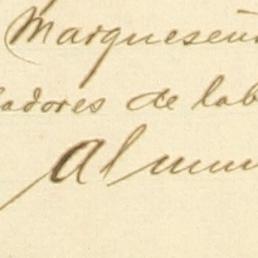 Marqueseñ
adores de lab
Alumn